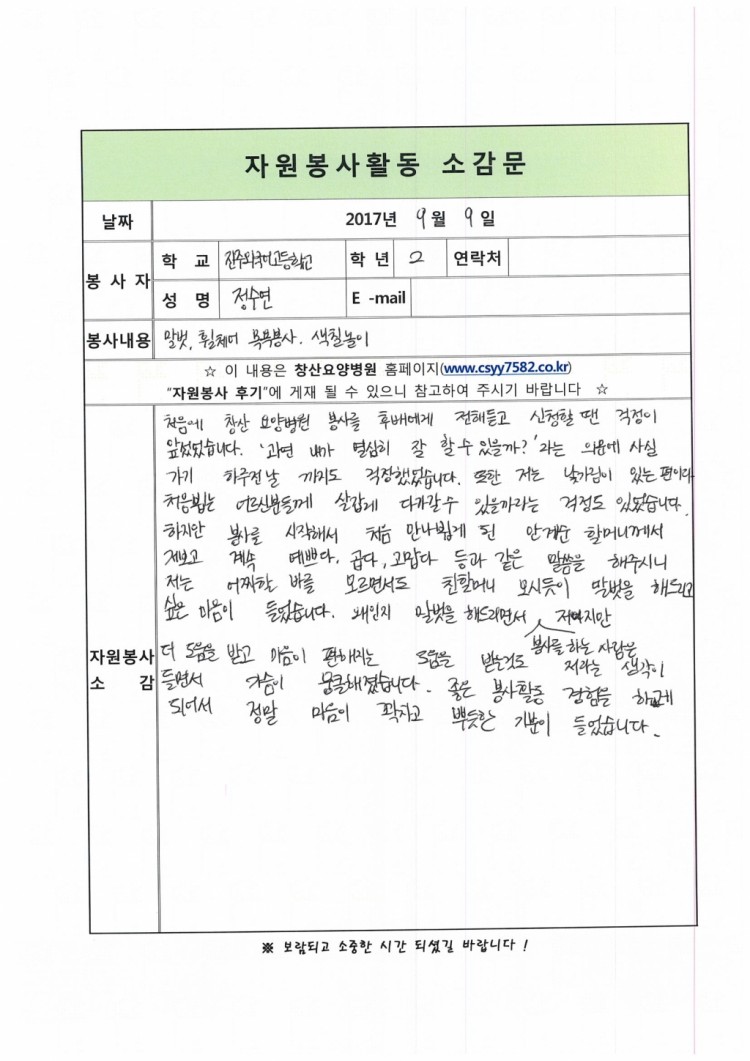 자원봉사활동 소감문
날짜 2017년 9월 9일
봉 사 자
학 교 진주외국어고등학교 학 년 2 연락처
성 명 정수연 E -mail
봉사내용 말벗, 휠체어 목욕봉사. 색칠놀이
☆ 이 내용은 창산요양병원 홈페이지(www.csyy7582.co.kr)
"자원봉사 후기"에 게재 될 수 있으니 참고하여 주시기 바랍니다 ☆
자원봉사
소 감
처음에 창산 요양병원 봉사를 후배에게 전해듣고 신청할 땐 걱정이
앞섰었습니다. '과연 내가 열심히 잘 할 수 있을까?'라는 의문에 사실
가기 하루전날 까지도 걱정했었습니다. 또한 저는 낯가림이 있는 편이라
처음뵙는 어르신분들께 살갑게 다가갈수 있을까라는 걱정도 있었습니다.
하지만 봉사를 시작해서 처음 만나뵙게 된 안계순 할머니께서
계속 예쁘다, 곱다, 고맙다 등과 같은 말씀을 해주시니
저는 어찌할 바를 모르면서도 친할머니 모시듯이 말벗을 해드리고
싶은 마음이 들었습니다. 왜인지 말벗을 해드리면서
봉사를 하는 사람은 저이지만
더 도움을 받고 마음이 편해지는 도움을 받는것도 저라는 생각이
들면서 가슴이 뭉클해졌습니다. 좋은 봉사활동 경험을 하게
되어서 정말 마음이 꽉차고 뿌듯한 기분이 들었습니다.
※ 보람되고 소중한 시간 되셨길 바랍니다 !